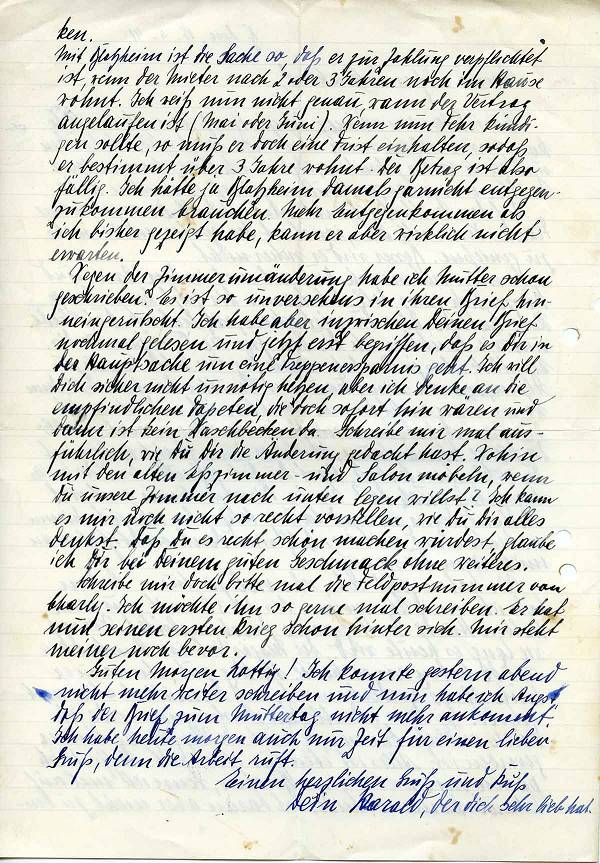 ken.
Mit Blatzheim ist die Sache so, daß er zur Zahlung verpflichtet
ist, wenn der Mieter nach 2 oder 3 Jahren noch im Hause
wohnt. Ich weiß nun nicht genau, wann der Vertrag
angelaufen ist (Mai oder Juni). Wenn nun Fehr kündi-
gen sollte, so muß er doch eine Frist einhalten, sodaß
er bestimmt über 3 Jahre wohnt. Der Betrag ist also
fällig. Ich hätte ja Blatzheim damals garnicht entgegen-
zukommen brauchen. Mehr Entgegenkommen als
ich bisher gezeigt habe, kann er aber wirklich nicht
erwarten.
Wegen der Zimmerumänderung habe ich Mutter schon
geschrieben. Es ist so unversehens in ihren Brief hin-
neingerutscht. Ich habe aber inzwischen Deinen Brief
nochmal gelesen und jetzt erst begriffen, daß es Dir in
der Hauptsache um eine Treppenersparnis geht. Ich will
Dich sicher nicht unnötig hetzen, aber ich denke an die
empfindlichen Tapeten, die doch sofort hin wären und
dann ist kein Waschbecken da. Schreibe mir mal aus-
führlich, wie Du Dir die Änderung gedacht hast. Wohin
mit den alten Eßzimmer- und Salonmöbeln, wenn
Du unsere Zimmer nach unten legen willst? Ich kann
es mir noch nicht so recht vorstellen, wie Du Dir alles
denkst. Daß Du es recht schön machen würdest, glaube
ich Dir bei Deinem guten Geschmack ohne weiteres.
Schreibe mir doch bitte mal die Feldpostnummer von
Charly. Ich möchte ihn so gerne mal schreiben. Er hat
nun seinen ersten Krieg schon hinter sich. Mir steht
meiner noch bevor.
Guten Morgen Lottig! Ich konnte gestern abend
nicht mehr weiter schreiben und nun habe ich Angst
daß der Brief zum Muttertag nicht mehr ankommt.
Ich habe heute morgen auch nur Zeit für einen lieben
Gruß, denn die Arbeit ruft.
Einen herzlichen Gruß und Kuß
Dein Harald, der dich sehr lieb hat.